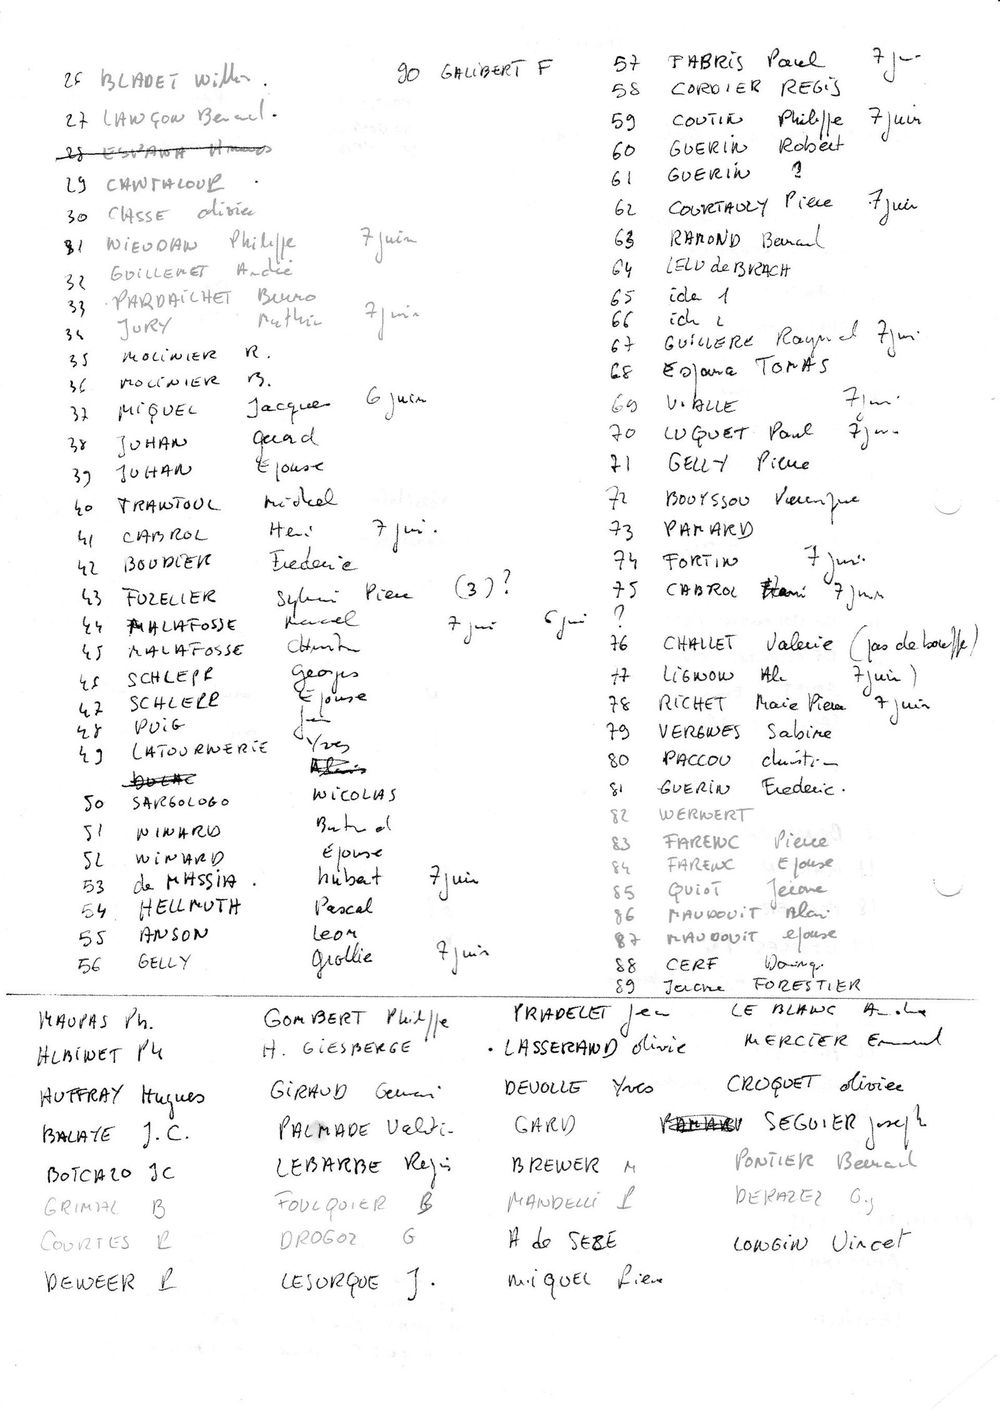 26 BLADET
27 LANÇON
28 ESPANA
29 CANTALOUP
30 CLASSE olivier
31 Philippe 7 juin
32 GUILLEMET André
33 PARDAILHET Bruno
34 JURY 7 juin
35 MOLINIER R.
36 MOLINIER B.
37 MIQUEL Jacques 6 juin
38 JUHAN Gerard
39 JUHAN Epouse
40 TRANTOUL Michel
41 CABROL Henri 7 jui.
42 BOUDIER Frederic
43 FUZELIER Sylvain Pierre (3)?
44 MALAFOSSE Marcel 7 jui 6 jui
45 MALAFOSSE
46 SCHLEPP Georges
47 SCHLEPP Epouse
48 PUIG
49 LATOURNERIE Yves
50 SARGOLOGO NICOLAS
51 NINARD
52 NINARD Epouse
53 de MASSIA. hubert 7 juin
54 HELLMUTH Pascal
55 ANSON Leon
56 GELLY 7 juin
90 GALIBERT F
57 FABRIS Paul 7 jui
58 CORDIER REGIS
59 COUTIN Philippe 7 juin
60 GUERIN Robert
61 GUERIN ?
62 COURTAULY Pierre 7 juin
63 RAMOND Bernard
64 LELU de BRACH
65 idem 1
66 idem 2
67 Raymond 7 jui
68 Espana TOMAS
69 VIALLE 7 jui.
70 LUQUET Paul 7 jui.
71 GELLY Pierre
72 BOUYSSOU Veronique
73 PAMARD
74 FORTIN 7 jui.
75 CABROL Henri 7 juin
?
76 CHALLET Valerie (pas de bouffe)
77 LIGNON 7 juin)
78 RICHET Marie Pierre 7 juin
79 VERGNES Sabine
80 PACCOU christian
81 GUERIN Frederic.
82 WERNERT
83 FARENC Pierre
84 FARENC Epouse
85 QUIOT Jerome
86 MAUDOUIT Alain
87 MAUDOUIT epouse
88 CERF
89 Jerome FORESTIER
MAUPAS Ph. GOMBERT Philippe PRADELET Jean LE BLANC
ALBINET Ph H. GIESBERGE . LASSERAND olivier MERCIER
AUFFRAY Hugues GIRAUD DEVOLLE Yves CROQUET olivier
BALAYE J.C. PALMADE GARD SEGUIER Joseph
BOTCAZO JC LEBARBE Regis BREWER M PONTIER Bernard
GRIMAL B FOULQUIER B MANDELLI P DERAZEZ
COURTES P DROGOZ G A de SEZE LONGIN Vincent
DEWEER P LESURQUE J. MIQUEL Pierre